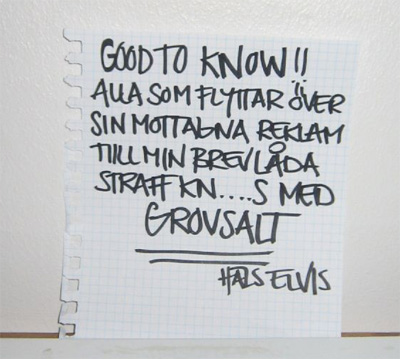 GOOD TO KNOW!!
ALLA SOM FLYTTAR ÖVER
SIN MOTTAGNA REKLAM
TILL MIN BREVLÅDA
STRAFFKN....S MED
GROVSALT
HALS ELVIS